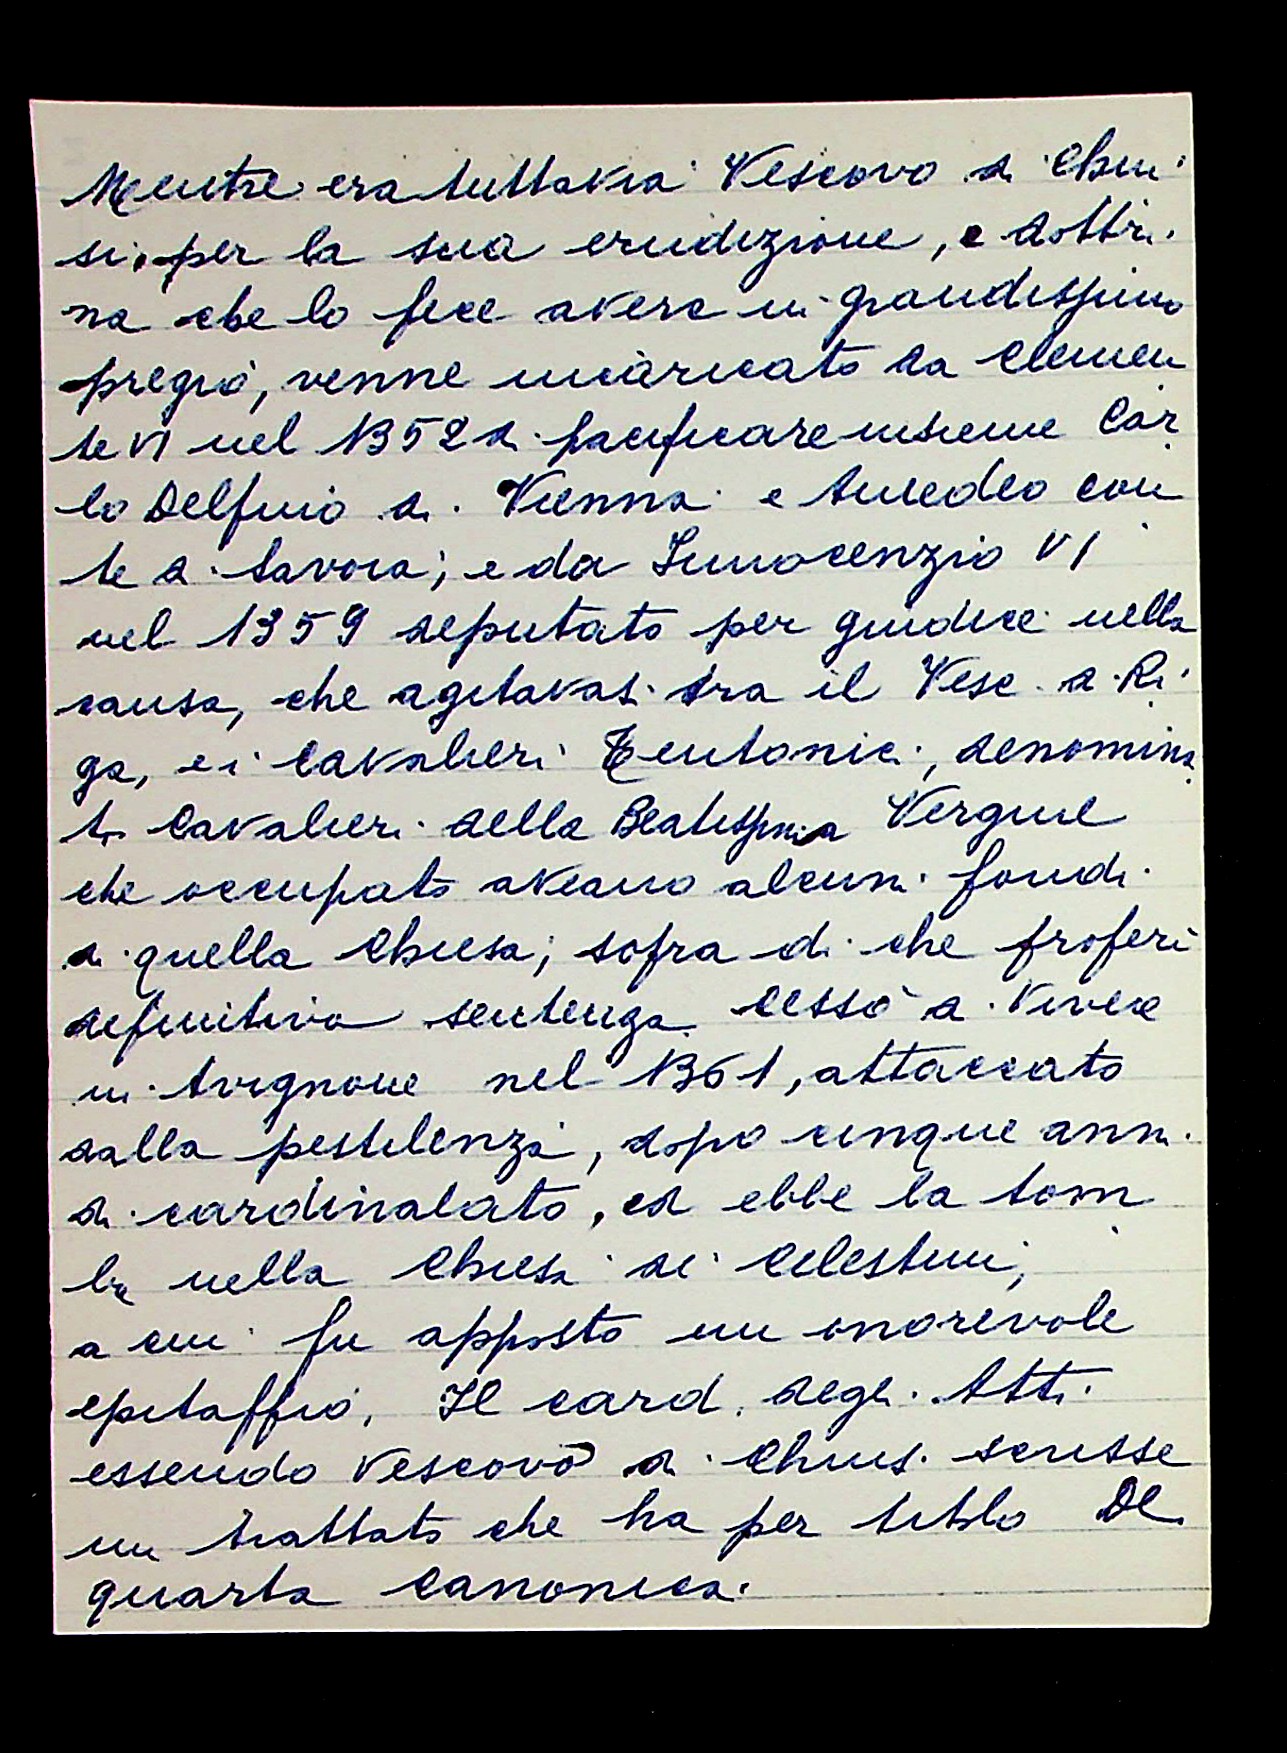 Mentre era tuttavia Vescovo di Chiu
si, per la sua erudizione, e dottri
na che lo fece avere in grandissimo
pregio, venne incaricato da Clemen
te VI nel 1352 di pacificare insieme Car
lo Delfino di Vienna e Amedeo con
te di Savoia; e da Innocenzio VI
nel 1359 deputato per giudice nella
causa, che agitavasi tra il Vesc. di Ri
ga, e i Cavalieri Teutonici, denomina
ti Cavalieri della Beatissima Vergine
che occupato aveano alcuni fondi
di quella Chiesa; sopra di che proferì
definitiva sentenza. Cessò di vivere
in Avignone nel 1361, attaccato
dalla pestilenza, dopo cinque anni
di cardinalato, ed ebbe la tom
ba nella Chiesa dei Celestini,
a cui fu apposto un onorevole
epitaffio. Il card. degli Atti
essendo Vescovo di Chiusi scrisse
un trattato che ha per titolo De
quarta Canonica.